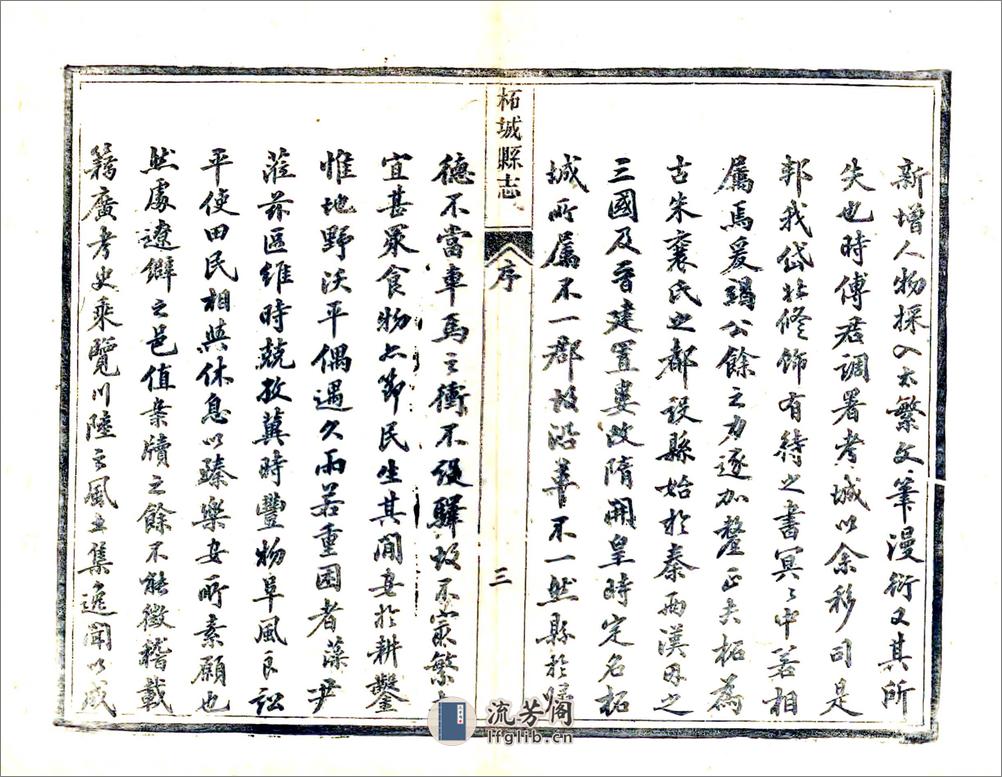 新增人物採入太繁文筆漫衍又其所
失也時傅君調署考城以余移司是
邦我岱於修飾有待之書冥冥中若相
屬焉爰竭公餘之力逐加釐正夫柘為
古朱襄氏之都設縣始於秦兩漢因之
三國及晉建置婁改隋開皇時定名柘
城所屬不一郡故沿革不一然縣於歸
柘城縣志
序
三
德不當車馬之衝不設驛故不甚繁
宜甚眾食物亦節民生其間安於耕鑿
惟地野沃平偶遇久雨若重困者藻尹
蒞茲區維時兢孜冀時豐物阜風良訟
平使田民相與休息以臻樂安所素願也
然處遼僻之邑值案牘之餘不能徵稽載
籍廣考史乘覽川陸之風土集逸聞以成
流芳阁
lfglib.cn